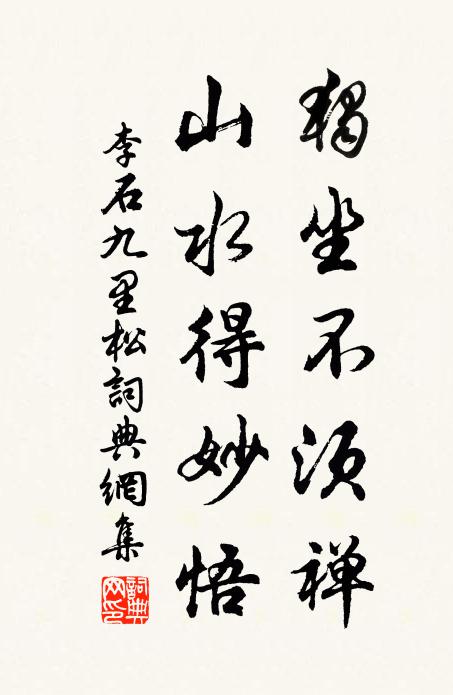 獨坐不須禪
山水得妙悟
李石九里松詞典網集
詞典网印